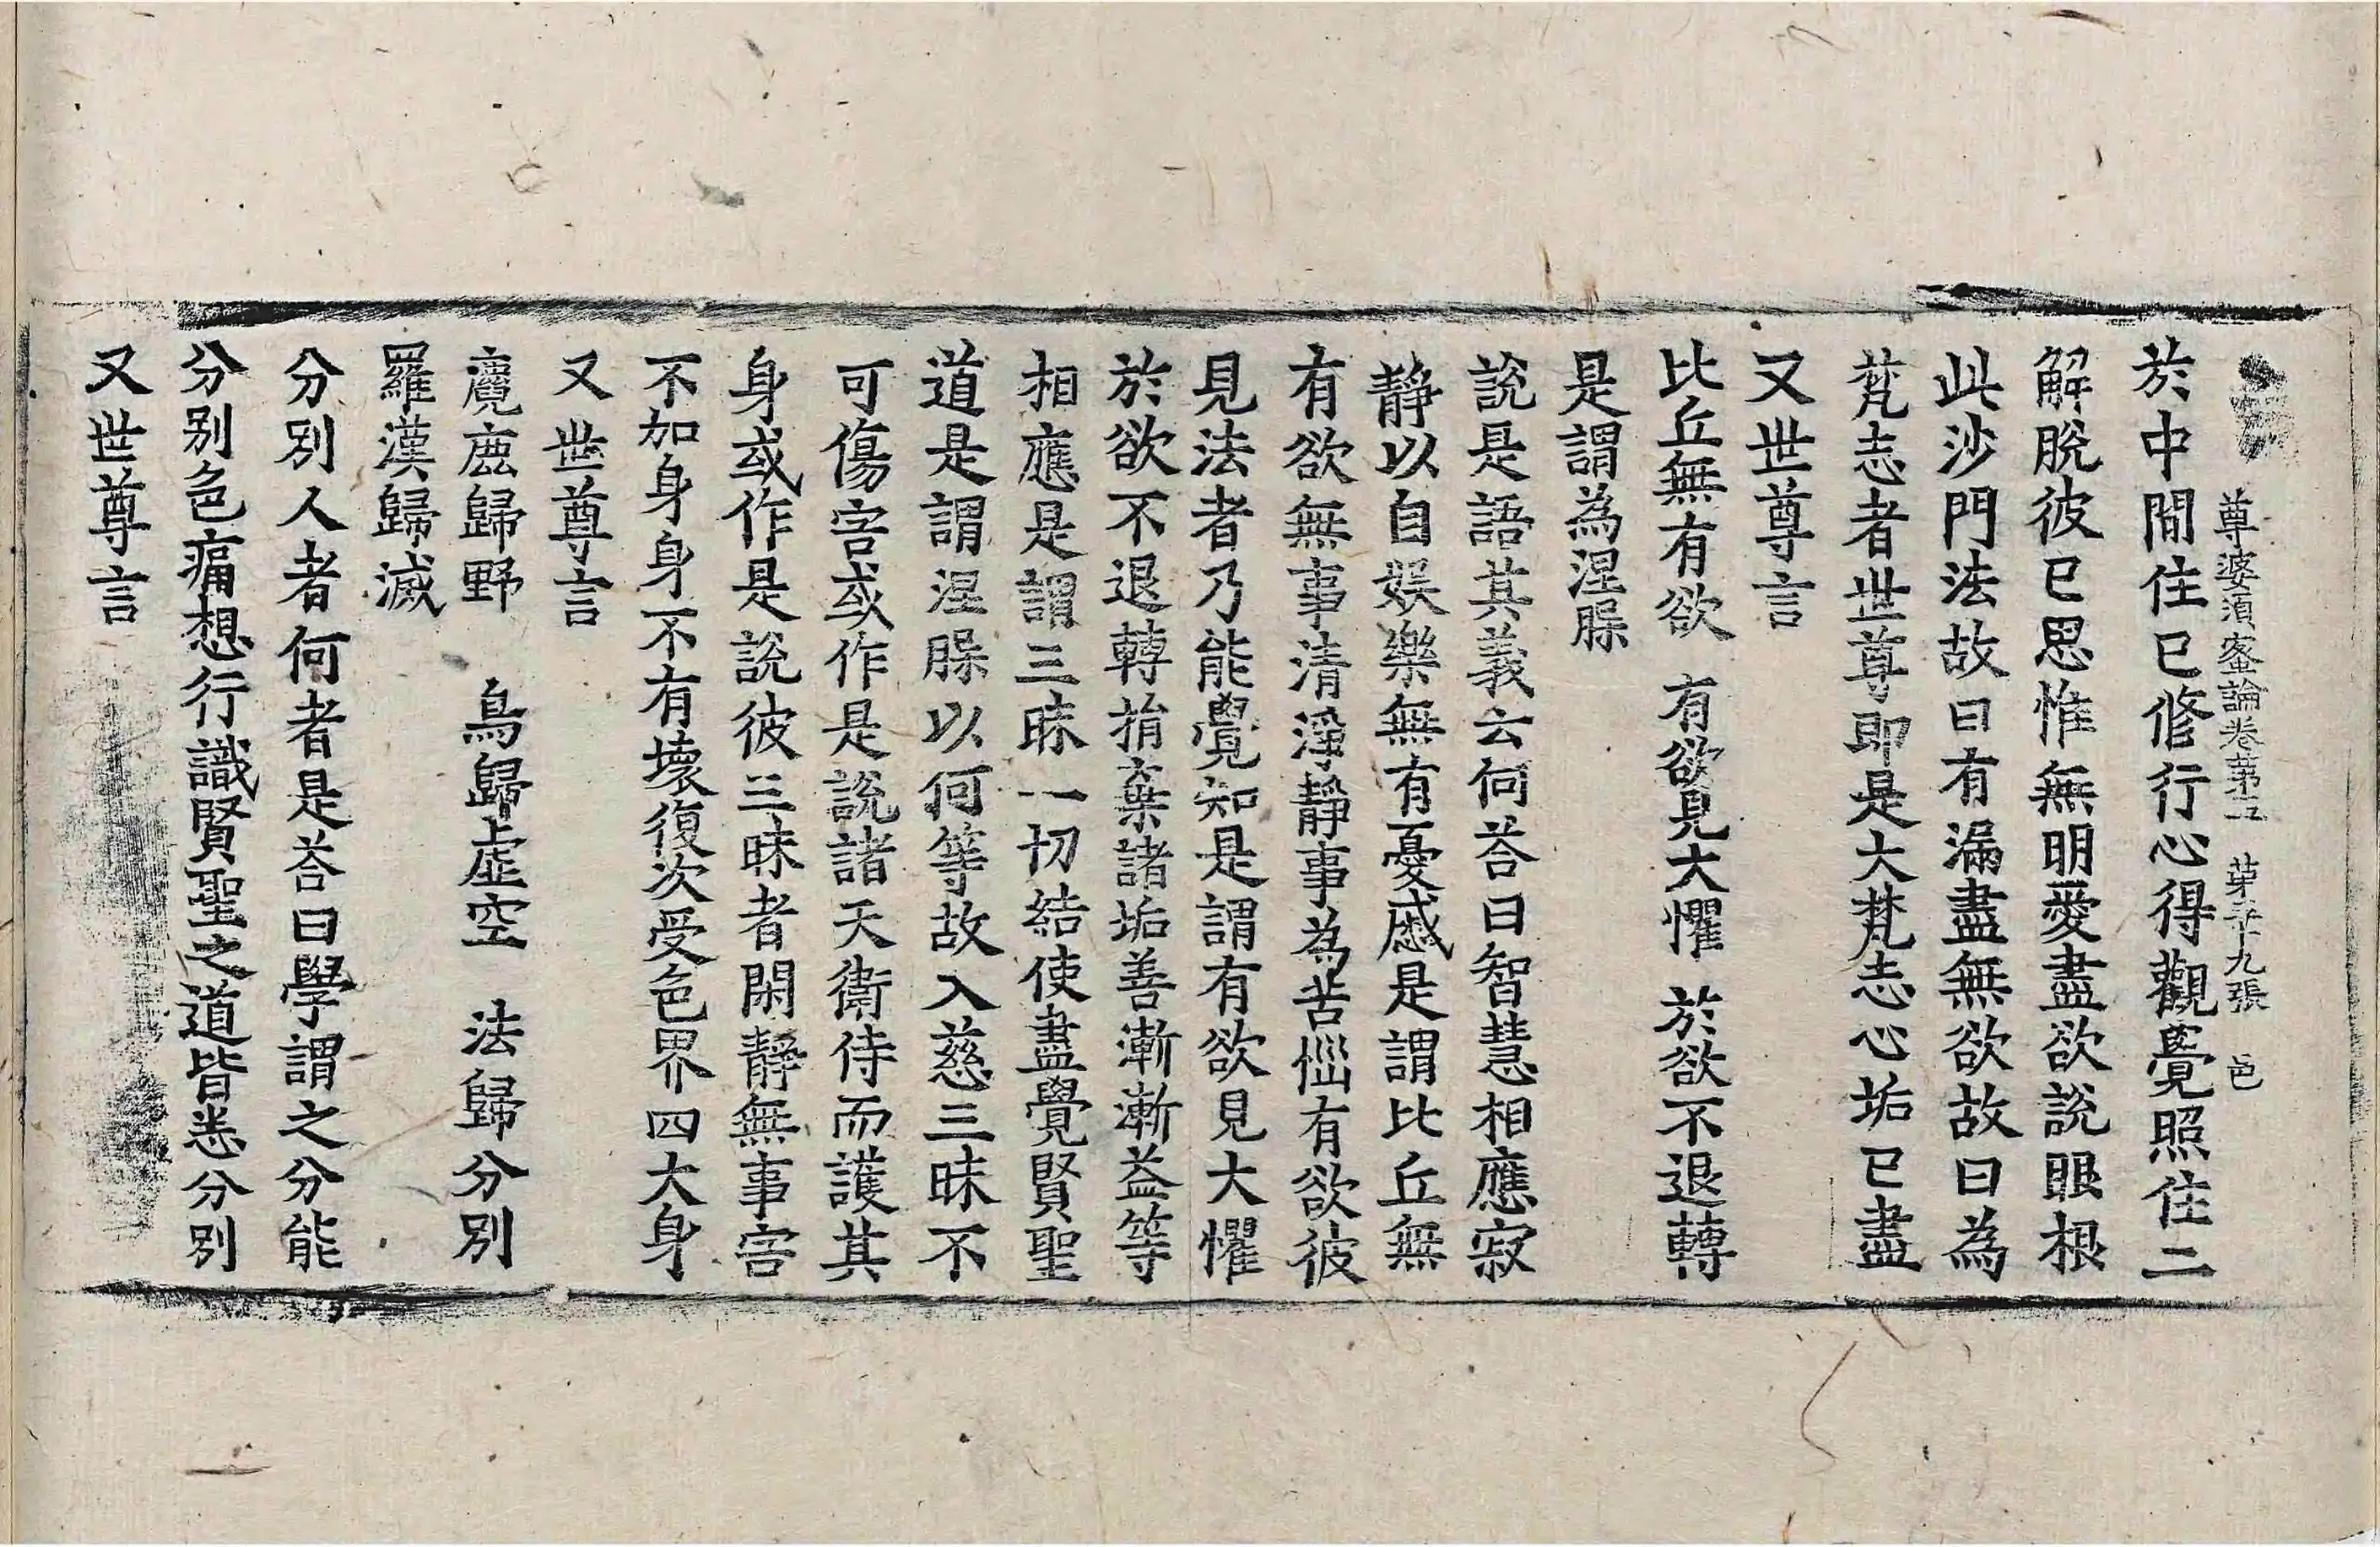 尊婆須蜜論卷第五　第二十九張　邑
於中間住已修行心得觀覺照住二
解脫彼已思惟無明愛盡欲說眼根
此沙門法故曰有漏盡無欲故曰為
梵志者世尊即是大梵志心垢已盡
又世尊言
比丘無有欲　有欲見大懼　於欲不退轉
是謂為涅槃
說是語其義云何荅曰智慧相應寂
靜以自娛樂無有憂慼是謂比丘無
有欲無事清淨靜事為苦惱有欲彼
見法者乃能覺知是謂有欲見大懼
於欲不退轉捐棄諸垢善漸漸益等
相應是謂三昧一切結使盡覺賢聖
道是謂涅槃以何等故入慈三昧不
可傷害或作是說諸天衛侍而護其
身或作是說彼三昧者閑靜無事害
不加身身不有壞復次受色界四大身
又世尊言
麑鹿歸野　鳥歸虛空　法歸分別
羅漢歸滅
分別人者何者是荅曰學謂之分能
分別色痛想行識賢聖之道皆悉分別
又世尊言